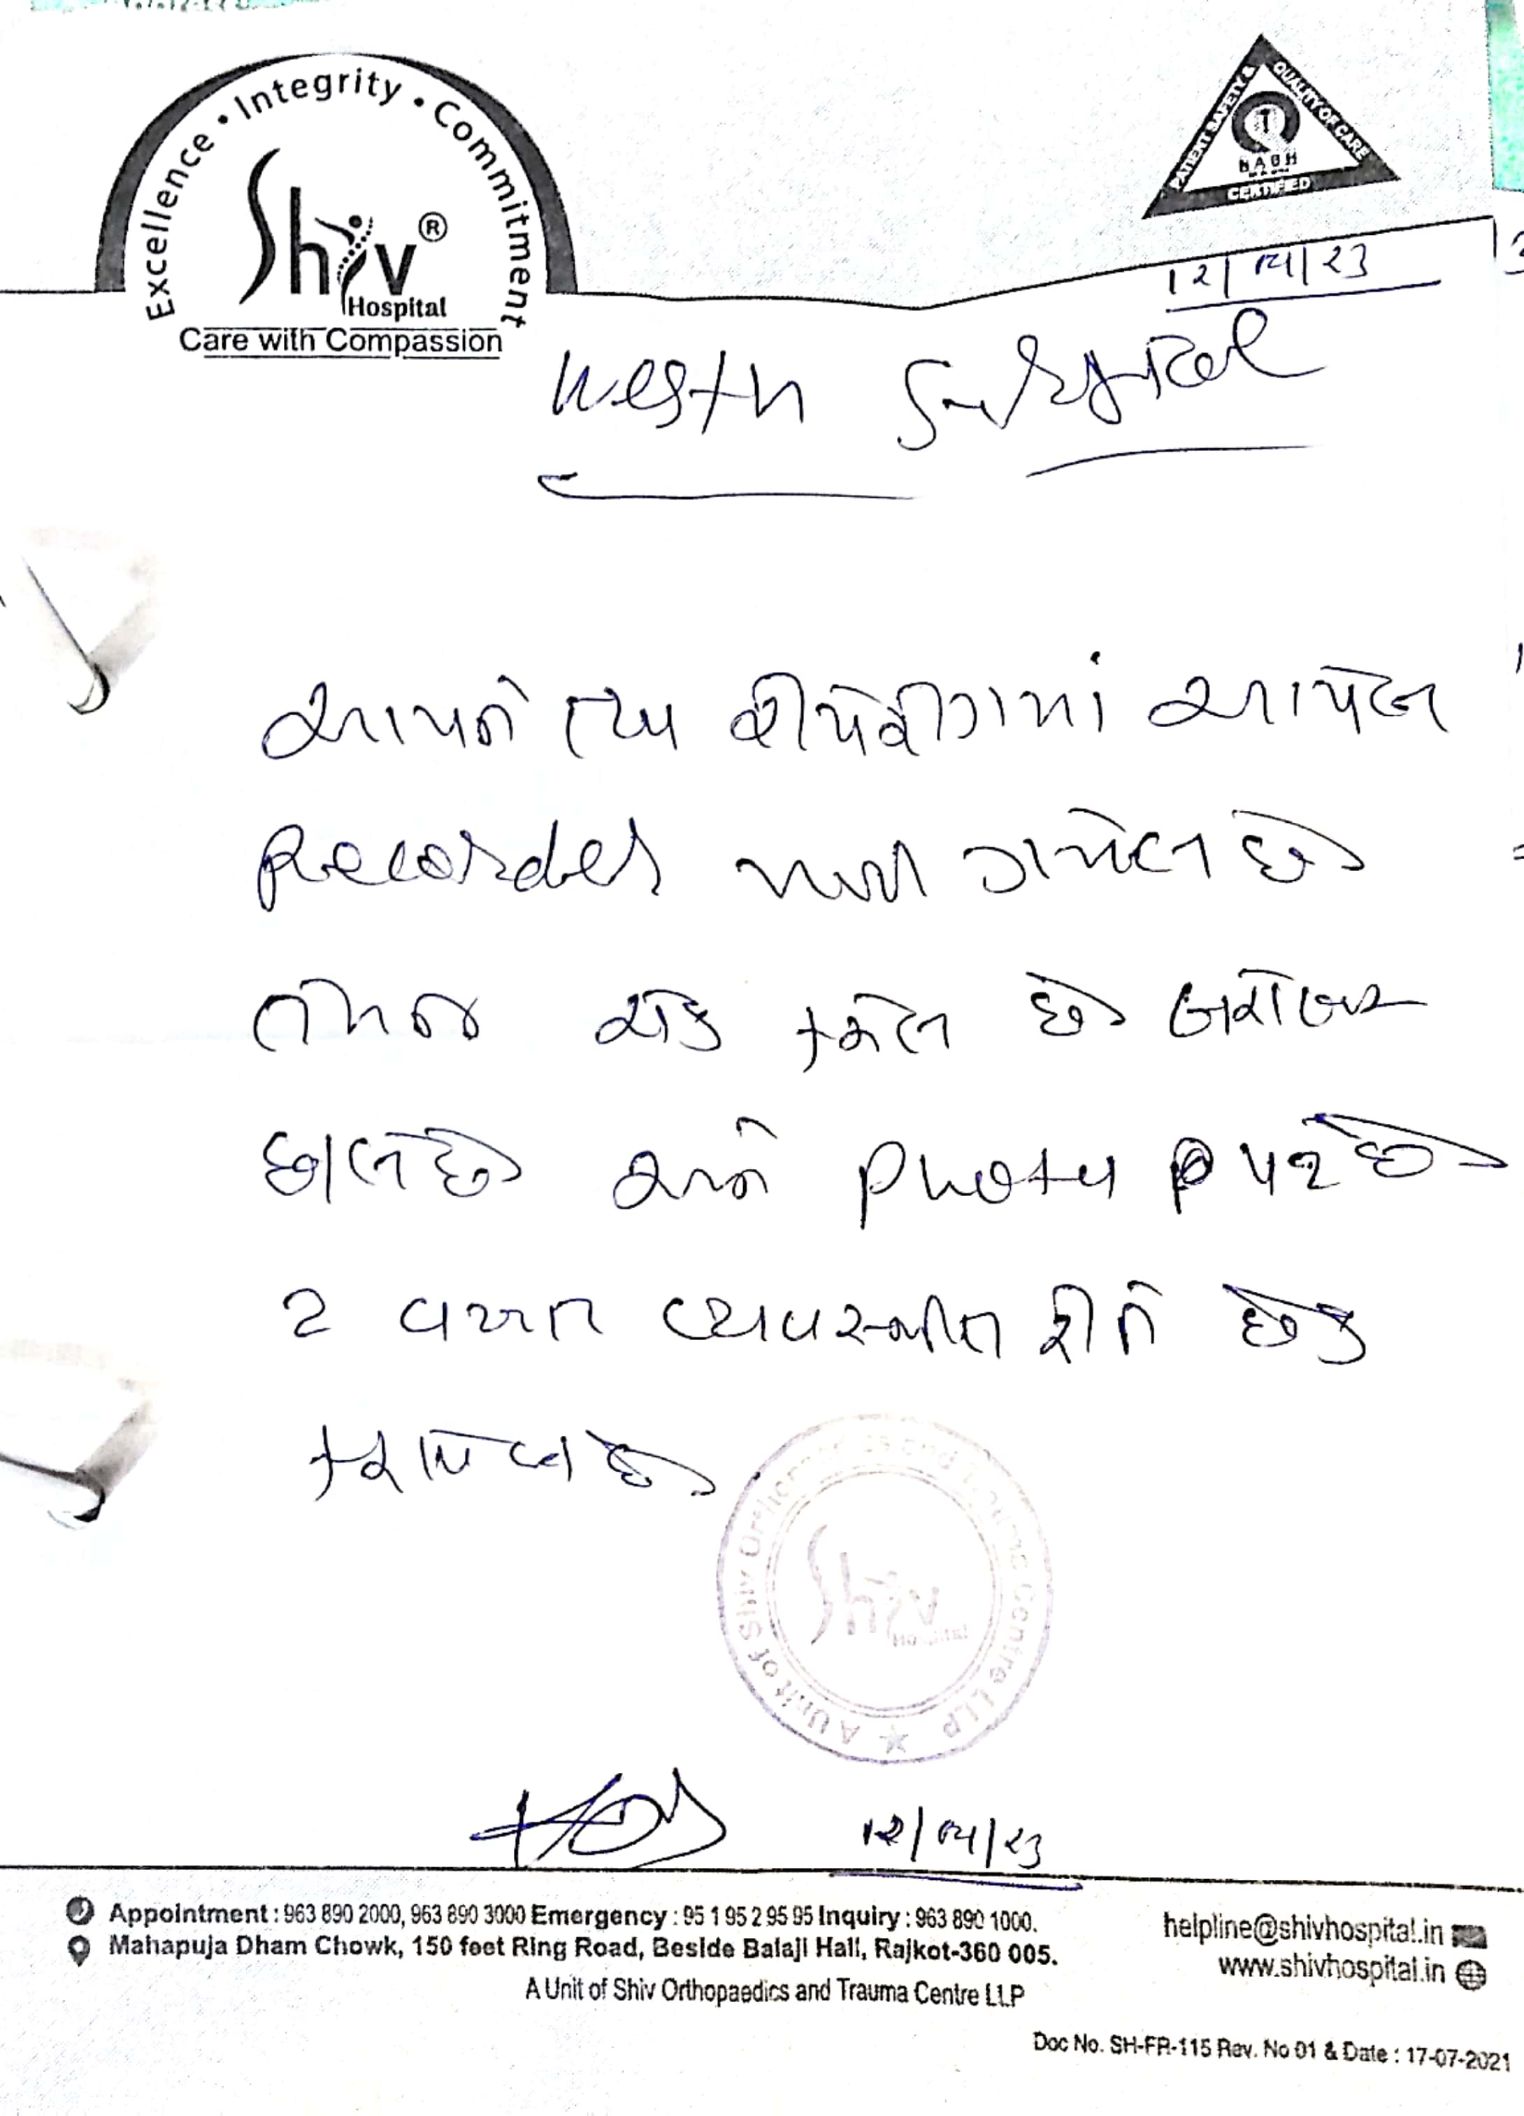 Excellence • Integrity • Commitment
Shiv®
Hospital
Care with Compassion
PATIENT SAFETY & QUALITY OF CARE
NABH
CERTIFIED
12/04/23
Surgical
આપને ત્યા રીપેરીગમાં આપેલ
Recorder મળી ગયેલ છે
તેમજ ચેક કરેલ છે બરોબર
ચાલે છે અને Photo પણ છે
2 વખત વ્યવસ્થીત રીતે ચેક
કરાવેલ છે
A Unit of Shiv Orthopaedics and Trauma Centre LLP
Shiv
Hospital
12/04/23
Appointment : 963 890 2000, 963 890 3000 Emergency : 95 1 95 2 95 95 Inquiry : 963 890 1000.
Mahapuja Dham Chowk, 150 feet Ring Road, Beside Balaji Hall, Rajkot-360 005.
helpline@shivhospital.in
www.shivhospital.in
A Unit of Shiv Orthopaedics and Trauma Centre LLP
Doc No. SH-FR-115 Rev. No 01 & Date : 17-07-2021